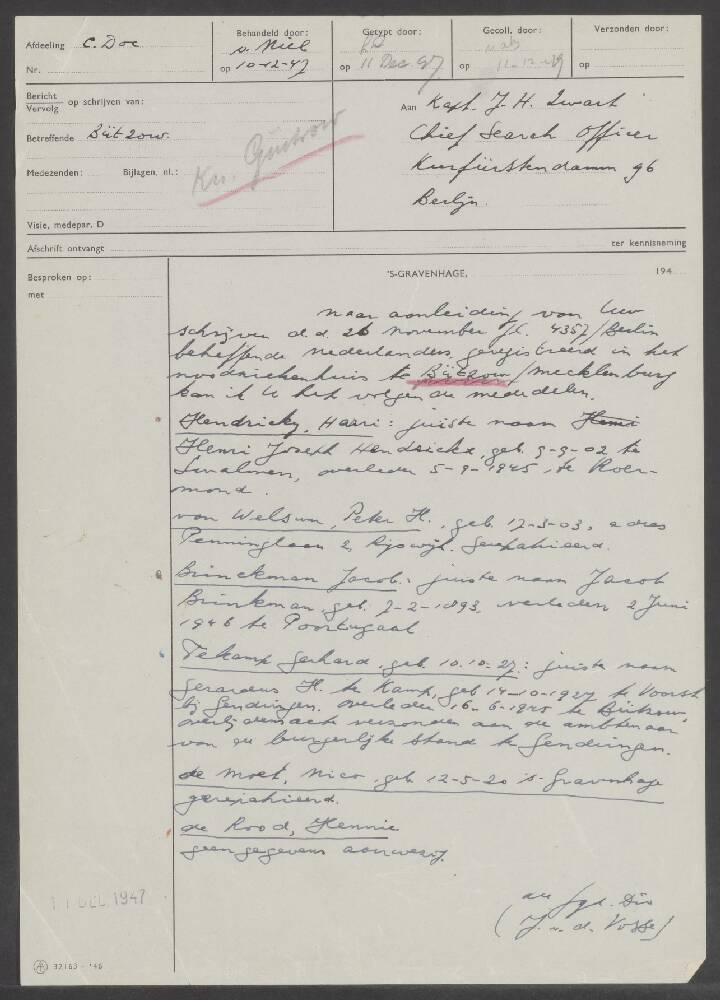 Afdeeling C. Doc
Nr.
Behandeld door:
v. Niel
op 10-12-47
Getypt door:
op 11 Dec. 47
Gecoll. door:
op 11-12-47
Verzonden door:
op
Bericht
Vervolg op schrijven van:
Betreffende Bützow.
Medezenden: Bijlagen, nl.:
Visie, medepar. D
Kr. Güstrow
Aan Kapt. J. H. Zwart
Chief Search Officer
Kurfürstendamm 96
Berlijn.
Afschrift ontvangt ter kennisneming
Besproken op:
met
'S-GRAVENHAGE, 194
naar aanleiding van Uw
schrijven d.d. 26 November jl. 4357/Berlin
betreffende nederlanders, geregistreerd in het
noodziekenhuis te Bützow/Mecklenburg
kan ik U het volgende mededelen.
Hendrickx, Harri: juiste naam Henri
Henri Joseph Hendrickx, geb. 9-9-02 te
Swalmen, overleden 5-9-1945 te Roer-
mond.
van Welsum, Peter H., geb. 12-3-03, adres
Penninglaan 2, Rijswijk. Gerepatrieerd.
Brinckman Jacob: juiste naam Jacob
Brinkman, geb. 7-2-1893, overleden 2 Juni
1946 te Poortugaal
Tekamp Gerhard, geb. 10.10.27: juiste naam
Gerardus H. te Kamp, geb 14-10-1927 te Voorst
bij Gendringen. overleden 16-6-1945 te Bützow,
overlijdensacte verzonden aan de ambtenaar
van de burgerlijke stand te Gendringen.
de Moet, Nico, geb. 12-5-20 's-Gravenhage
gerepatrieerd.
de Rood, Hennie
geen gegevens aanwezig.
11 DEC. 1947
Dir
(J. v. d. Vosse)
32163 - '46